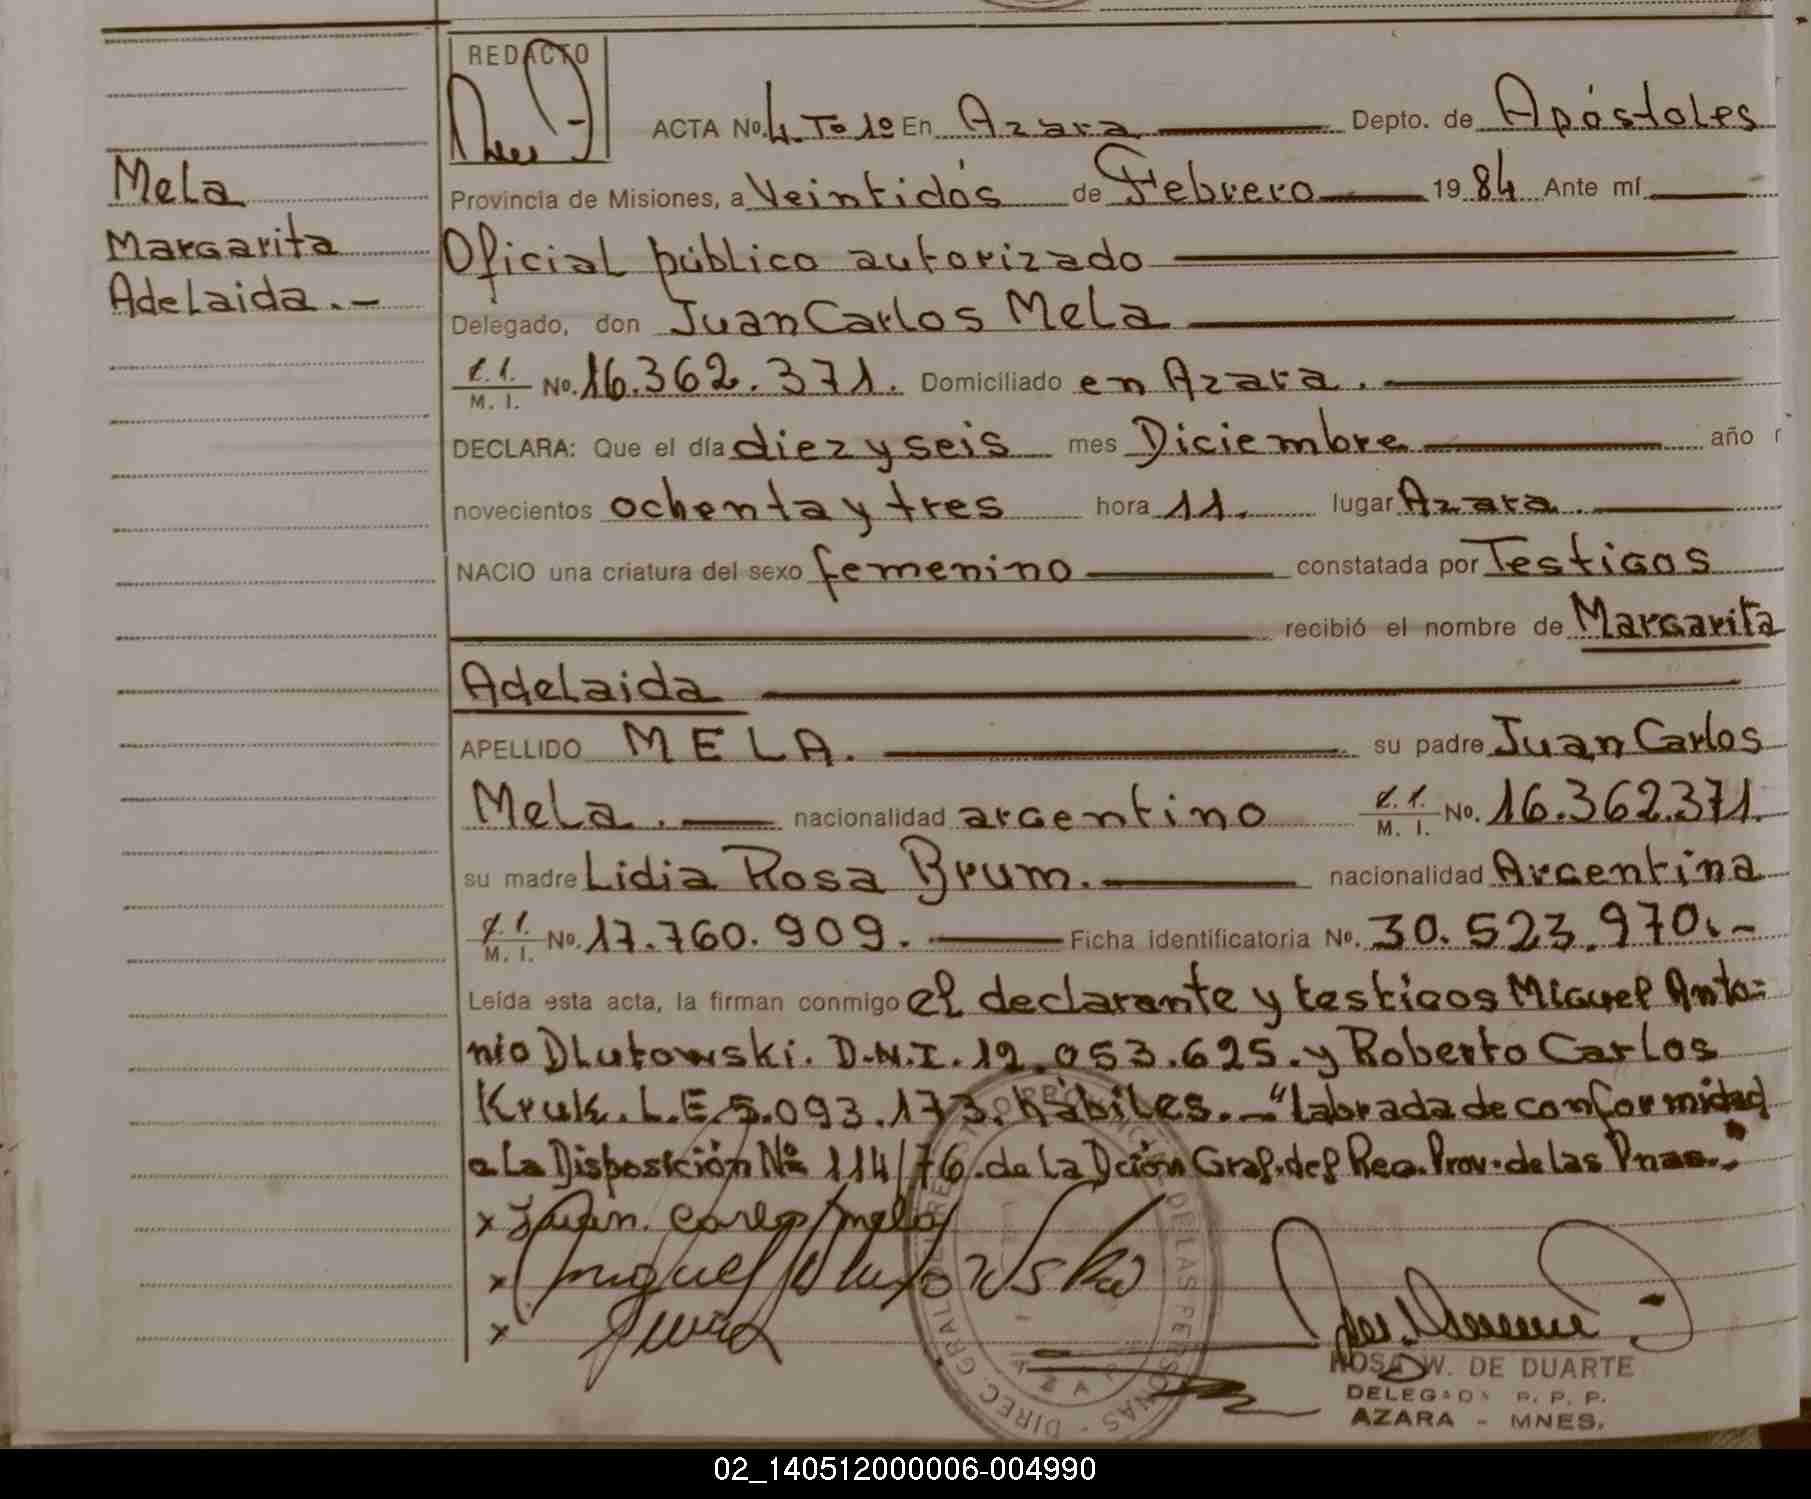 REDACTO
ACTA No. 4. Tº 1º En Azara Depto. de Apóstoles
Mela
Provincia de Misiones, a Veintidós de Febrero 1984 Ante mí
Margarita
Oficial público autorizado
Adelaida.-
Delegado, don Juan Carlos Mela
M. I. No. 16.362.371. Domiciliado en Azara.
DECLARA: Que el día diez y seis mes Diciembre año
novecientos ochenta y tres hora 11. lugar Azara.
NACIO una criatura del sexo femenino constatada por Testigos
recibió el nombre de Margarita
Adelaida
APELLIDO MELA. su padre Juan Carlos
Mela. nacionalidad argentino M. I. No. 16.362.371.
su madre Lidia Rosa Brum. nacionalidad Argentina
M. I. No. 17.760.909. Ficha identificatoria No. 30.523.970.-
Leída esta acta, la firman conmigo el declarante y testigos Miguel Anto=
nio Dlutowski. D.N.I. 12.053.625. y Roberto Carlos
Kruk. L.E. 5.093.173. hábiles.- "Labrada de conformidad
a La Disposición Nº 114/76. de La Dción Gral. del Reg. Prov. de las Pnas."
x Juan. Carlos Mela
x Miguel Dlutowski
x
DIREC. GRAL. DE LAS PERSONAS
AZARA
ROSA W. DE DUARTE
DELEGADA R. P. P.
AZARA - MNES.
02_140512000006-004990